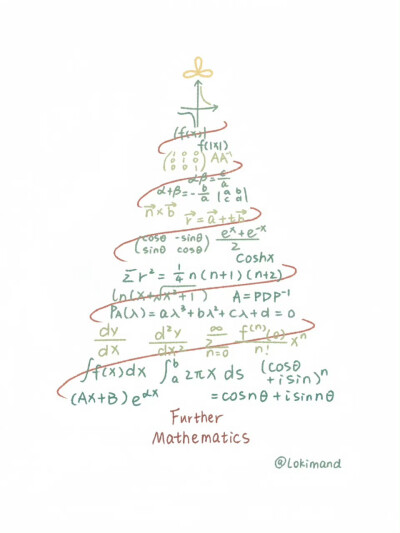 |f(x)|
f(|x|)
(1 0 0
0 1 0
0 0 1) AA⁻¹
αβ = c/a
α+β = -b/a |a b
c d|
n⃗ × b⃗ r⃗ = a⃗ + tb⃗
(cosθ -sinθ
sinθ cosθ) (eˣ + e⁻ˣ)/2
Coshx
Σr² = 1/4 n(n+1)(n+2)
ln(x+√(x²+1)) A = PDP⁻¹
P_A(λ) = aλ³ + bλ² + cλ + d = 0
dy/dx d²y/dx² ∞Σn=0 f⁽ⁿ⁾(0)/n! xⁿ
∫f(x)dx ∫ₐᵇ 2πx ds (cosθ
+ isin)ⁿ
(Ax+B)e^αx = cosnθ + isinnθ
Further
Mathematics
@Lokimand